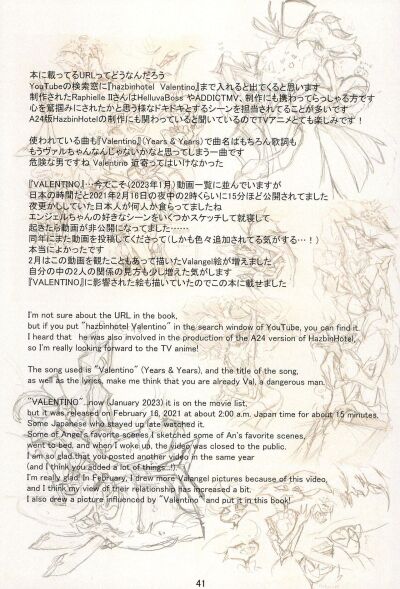 本に載ってるURLってどうなんだろう
YouTubeの検索窓に『hazbinhotel Valentino』まで入れると出てくると思います
制作されたRaphielle IIさんはHelluvaBoss やADDICTMV、制作にも携わってらっしゃる方です
心を鷲掴みにされたかと思う様なドキドキとするシーンを担当されてることが多いです
A24版HazbinHotelの制作にも関わっていると聞いているのでTVアニメとても楽しみです！
使われている曲も『Valentino』(Years & Years)で曲名はもちろん歌詞も
もうヴァルちゃんなんじゃないかなと思ってしまう一曲です
危険な男ですね Valentino 近寄ってはいけなかった
『VALENTINO』…今でこそ(2023年1月)動画一覧に並んでいますが
日本の時間だと2021年2月16日の夜中の2時くらいに15分ほど公開されてました
夜更かししていた日本人が何人か食らってましたね
エンジェルちゃんの好きなシーンをいくつかスケッチして就寝して
起きたら動画が非公開になってました……
同年にまた動画を投稿してくださって(しかも色々追加されてる気がする…！)
本当によかったです
2月はこの動画を観たこともあって描いたValangel絵が増えました
自分の中の2人の関係の見方も少し増えた気がします
『VALENTINO』に影響された絵も描いていたのでこの本に載せました
I'm not sure about the URL in the book,
but if you put "hazbinhotel Valentino" in the search window of YouTube, you can find it.
I heard that he was also involved in the production of the A24 version of HazbinHotel,
so I'm really looking forward to the TV anime!
The song used is "Valentino" (Years & Years), and the title of the song,
as well as the lyrics, make me think that you are already Val, a dangerous man.
"VALENTINO"...now (January 2023) it is on the movie list,
but it was released on February 16, 2021 at about 2:00 a.m. Japan time for about 15 minutes.
Some Japanese who stayed up late watched it.
Some of Angel's favorite scenes I sketched some of An's favorite scenes,
went to bed, and when I woke up, the video was closed to the public.
I am so glad that you posted another video in the same year
(and I think you added a lot of things...!)
I'm really glad. In February, I drew more Valangel pictures because of this video,
and I think my view of their relationship has increased a bit.
I also drew a picture influenced by "Valentino" and put it in this book!
41